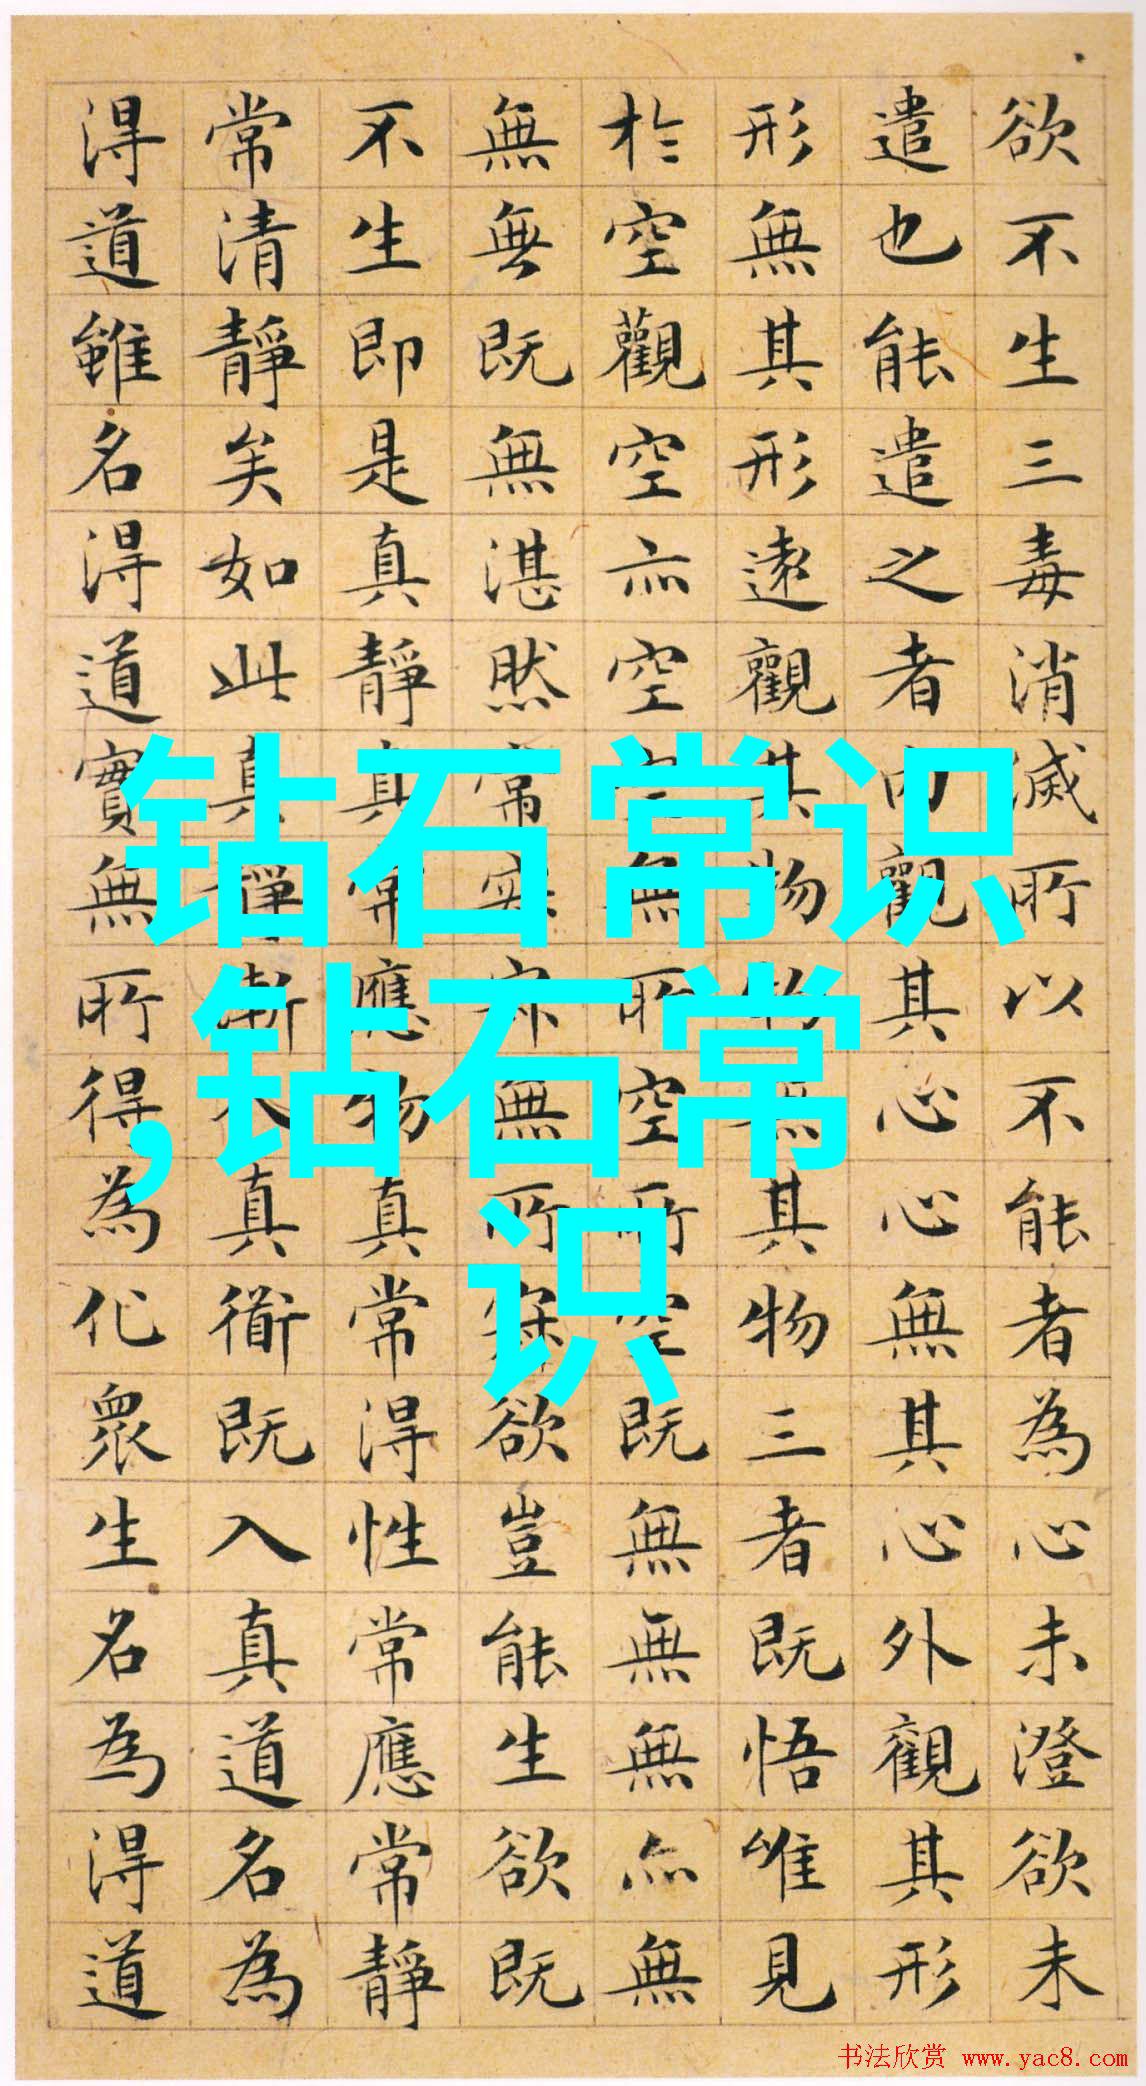 欲不生三毒消滅所以不能者為心未澄欲未
遣也能遣之者内觀其心心無其心外觀其形
形無其形遠觀其物物無其物三者既悟唯見
於空觀空亦空空無所空所空既無無無亦無
無無既無湛然常寂寂無所寂欲豈能生欲既
不生即是真靜真常應物真常得性常應常靜
常清靜矣如此真靜漸入真衜既入真道名為
得道雖名得道實無所得為化眾生名為得道
钻石常识
,钻石常
识
书法欣赏 www.yac8.com